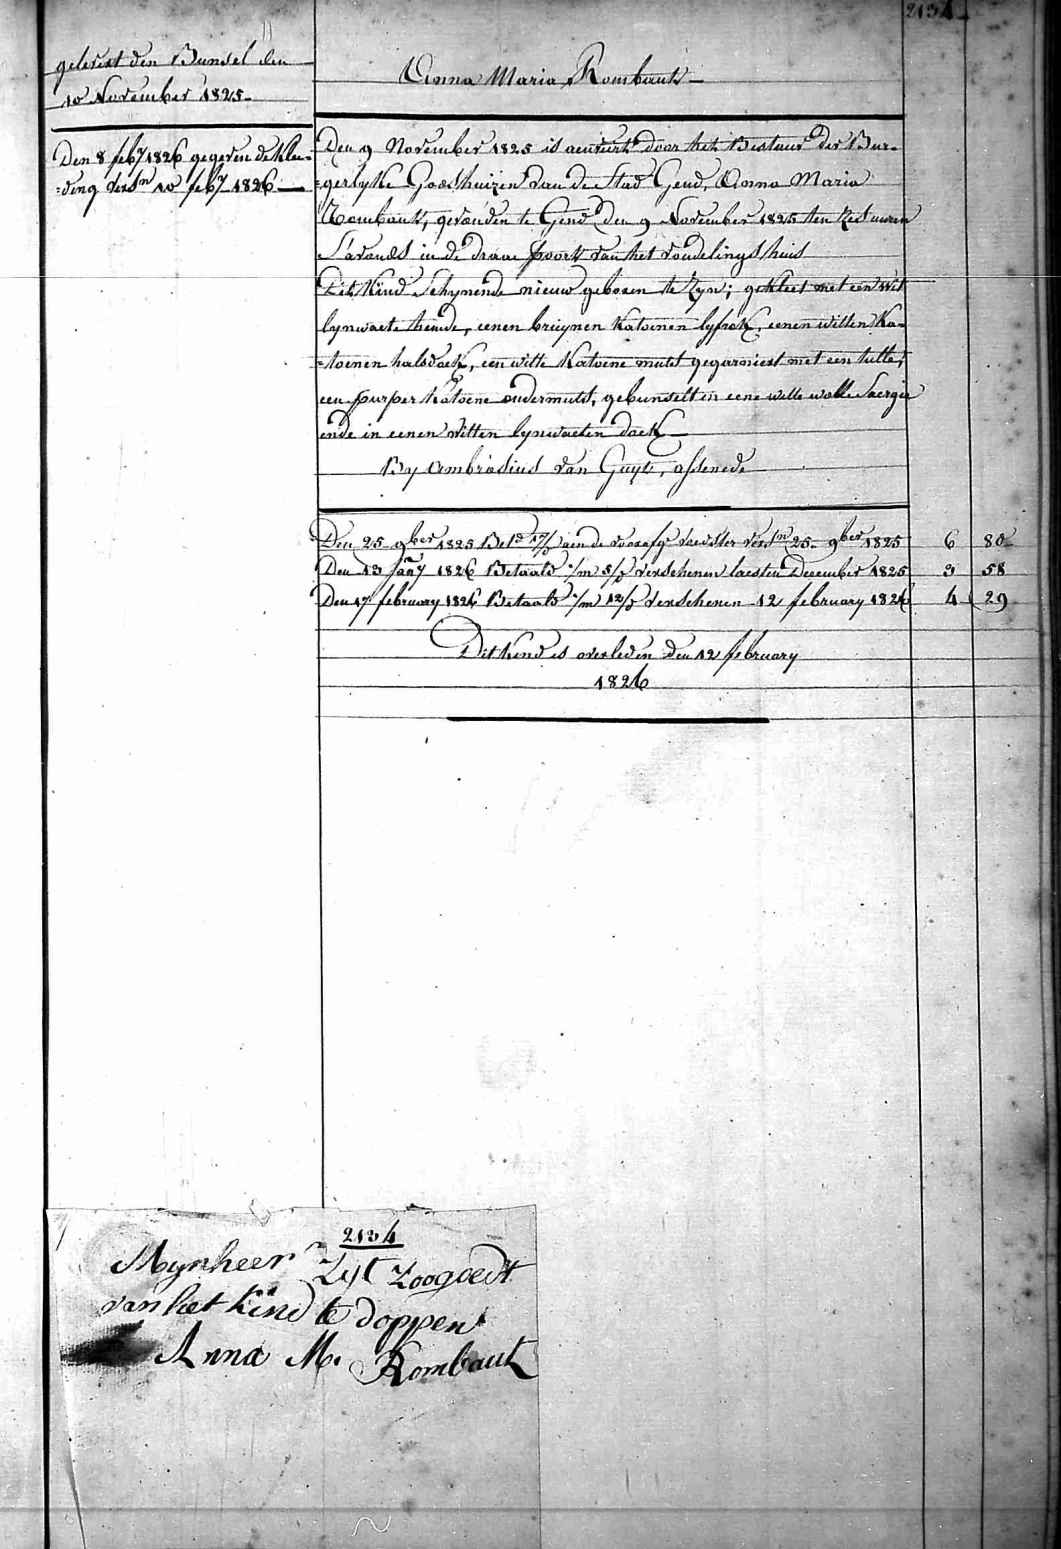 2134
gelevert den Bunsel den
10 November 1825-
Den 8 feb.y 1826 gegeven de klee-
=ding versn 10 feby 1826 —
Anna Maria Rombaut —
Den 9 November 1825 is aenveert door het Bestuur der Bur-
=gerlyke Godshuizen van de Stad Gend, Anna Maria
Rombaut, gevonden te Gend den 9 November 1825 ten zes uuren
S'avonds in de draai poort van het vondelingshuis
Dit Kind Schynende nieuw geboren te zyn; gekleet met een wit
lynwaete hemde, eenen bruynen katoenen lyfrok, eenen witten Ka-
=toenen halsdoek, een witte Katoene mutst gegarniert met een tulle,
een purper katoene ondermutst, gebunselt in eene witte wolle Saergie
ende in eenen witten lynwaeten doek —
By Ambrosius van Guyt, assenede
Den 25 9ber 1825 Bet.d 17/ aen de voorsz. voedster versn 25 9ber 1825 6 80
Den 13 Jany 1826 Betaald 1/m 5/ verschenen laesten December 1825 3 58
Den 17 february 1826 Betaald 1/m 12/ verschenen 12 february 1826 4 29
Dit kind is overleden den 12 february
1826
2134
Mynheer Zyt zoogoedt
van het kind te doppen
Anna M. Rombaut